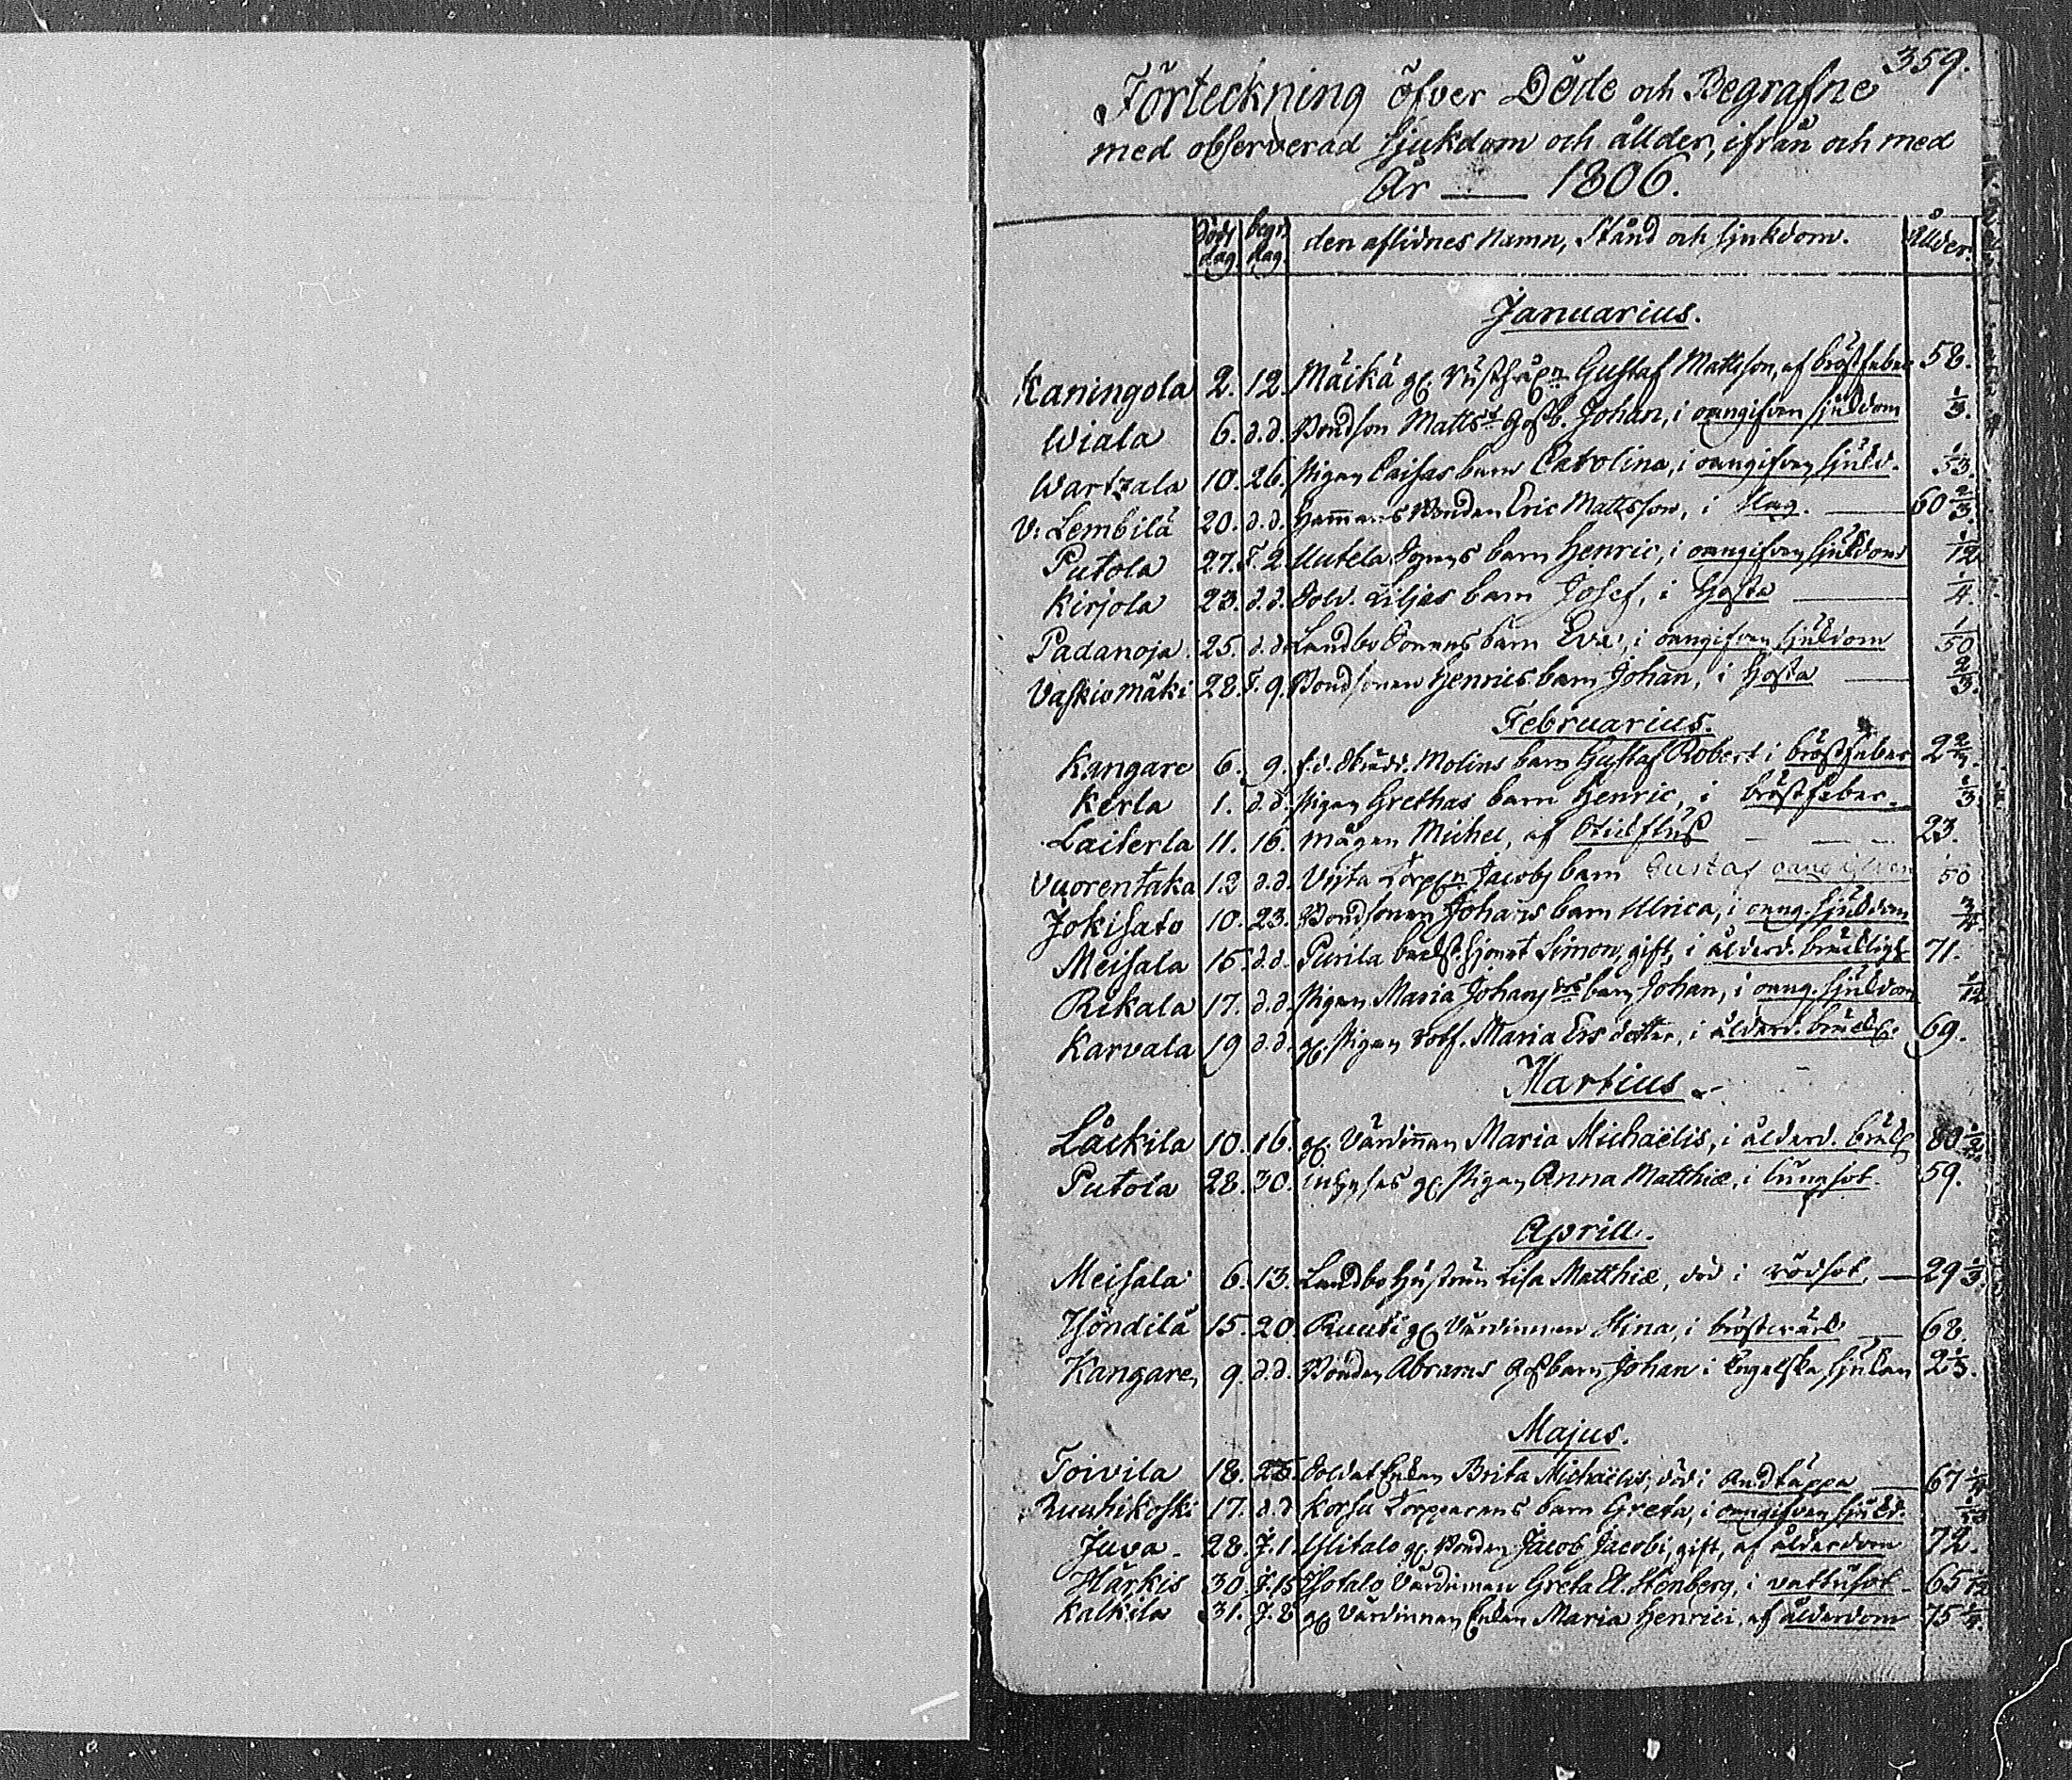 359.
Förteckning öfver Döde och Begrafne
med observerad sjukdom och ållder, ifrån och med
År — 1806.
Död dag. begr. dag. den aflidnes Namn, Stånd och sjukdom. Ållder.
Januarius.
Kaningola 2. 12. Mäikä Gustaf Mattsson, af bröstfeber 58.
Wiala 6. d.d. Bondson Matts Johan, i oangifven sjukdom 1/3.
Wartzala 10. 26. Pigan Caisas barn Carolina, i oangifven sjukd.
V: Lembilä 20. d.d. Bonden Eric Mattsson, i slag. — 60 2/3.
Putola 27. F. 2. Uutela barn Henric, i oangifven sjukdom 1/12
Kirjola 23. d.d. Sold. Liljas barn Josef, i hosta — 1/4.
Padanoja. 25. d.d. Landbo barn Eva, i oangifven sjukdom 1/50
Vaskiomäki 28. F. 9. Bondsonen Henrics barn Johan, i hosta — 2/3.
Februarius.
Kangare 6. 9. f.d. Molins barn Gustaf Robert i bröstfeber 2
Kerla 1. d.d. Pigan Grethas barn Henric, i bröstfeber. 1/3.
Laiterla 11. 16. mågen Michel, af — 23.
Vuorentaka 12 d.d. Torp:n Jacobs barn Gustaf oangifven 1/50
Jokisato 10. 23. Bondsonen Johans barn Ulrica, i oang. sjukdom
Meisala 16. d.d. Purila Simon, gift, i ålderd. bräcklighet 71.
Rekala 17. d.d. Pigan Maria Johans drs barn Johan, i oang. sjukdom 1/12
Karvala 19 d.d. Pigan Maria Ers dotter, i ålderd. bräckl. 69.
Martius.
Låckila 10. 16. Värdinnan Maria Michaëlis, i ålderd. bräckl. 80 1/2
Putola 28. 30. inhyses Pigan Anna Matthiæ, i lungsot. 59.
Aprill.
Meisala 6. 13. Landbo hustrun Lisa Matthiæ, död i rödsot. — 29 1/3.
Höndilä 15. 20. Ruuti Värdinnan Stina, i bröstvärk — 68.
Kangare, 9. d.d. Bonden Abrams barn Johan i Engelska sjukan 2 1/3.
Majus.
Toivila 18. 25. Soldat Enkan Brita Michaëlis, död i andtäppa — 67
Ruuhikoski 17. d.d. Korsu Torpparens barn Greta, i oangifven sjukd.
Juva. 28. J. 1. Bonden Jacob Jacobi, gift, af ålderdom 72.
Härkis 30. J. 15 Värdinnan Greta El. Stenberg, i vattusot 65 1/12
Kalkila 31. J. 8 Värdinnan Enkan Maria Henrici, af ålderdom 75 1/4.